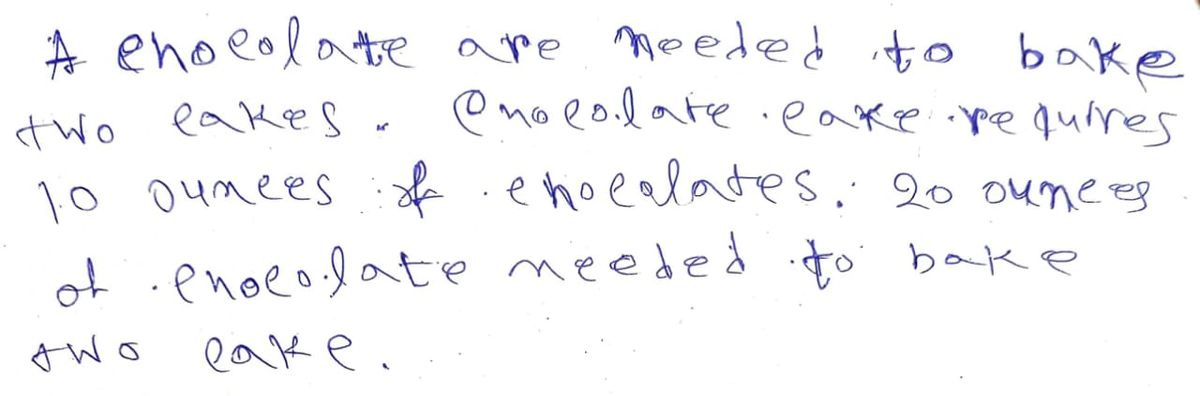 A chocolate are needed to bake
two cakes. Chocolate cake requires
10 ounces of chocolates. 20 ounces
of chocolate needed to bake
two cake.